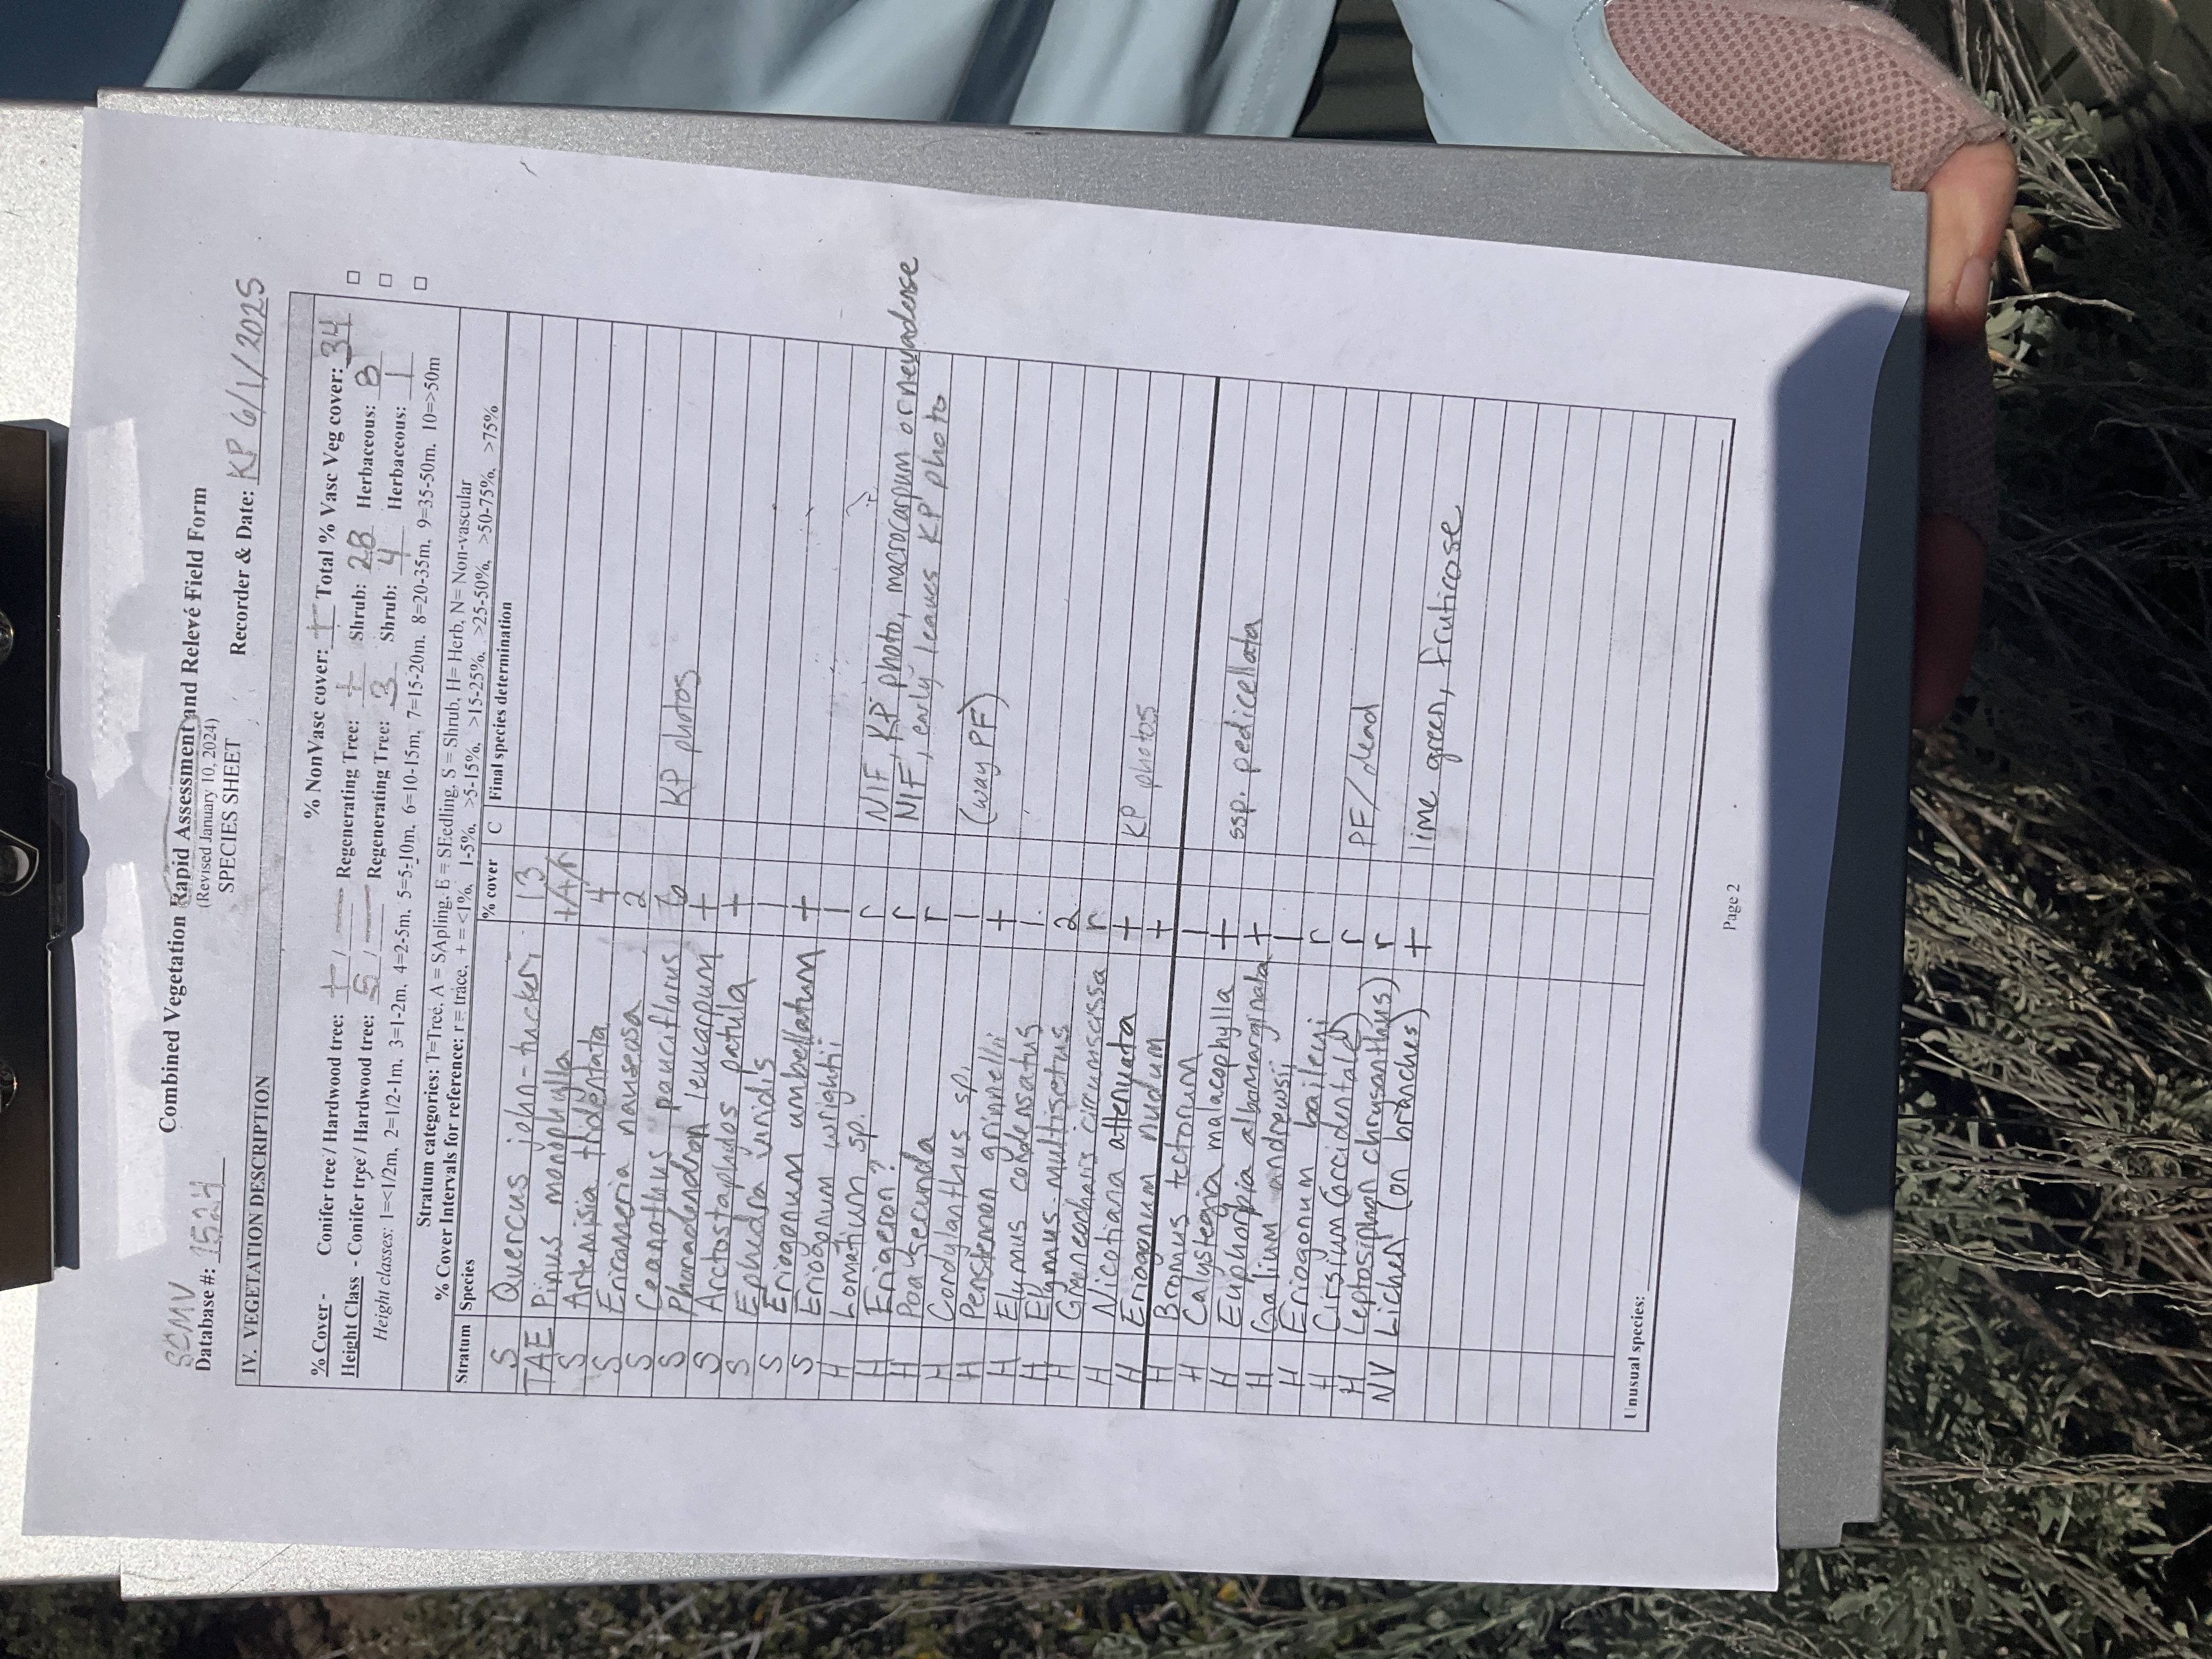 Combined Vegetation Rapid Assessment and Relevé Field Form
(Revised January 10, 2024)
SPECIES SHEET
SCMV
Database #: 1524 Recorder & Date: KP 6/1/2025
IV. VEGETATION DESCRIPTION
% NonVasc cover: + Total % Vasc Veg cover: 34
% Cover - Conifer tree / Hardwood tree: + / — Regenerating Tree: + Shrub: 28 Herbaceous: 8
Height Class - Conifer tree / Hardwood tree: 5 / — Regenerating Tree: 3 Shrub: 4 Herbaceous: 1
Height classes: 1=<1/2m, 2=1/2-1m, 3=1-2m, 4=2-5m, 5=5-10m, 6=10-15m, 7=15-20m, 8=20-35m, 9=35-50m, 10=>50m
Stratum categories: T=Tree, A = SApling, E = SEedling, S = Shrub, H= Herb, N= Non-vascular
% Cover Intervals for reference: r = trace, + = <1%, 1-5%, >5-15%, >15-25%, >25-50%, >50-75%, >75%
Stratum Species % cover C Final species determination
S Quercus john-tuckeri 13
TAE Pinus monophylla +/+/r
S Artemisia tridentata 4
S Ericameria nauseosa 2
S Ceanothus pauciflorus 6 KP photos
S Phoradendron leucarpum +
S Arctostaphylos patula +
S Ephedra viridis 1
S Eriogonum umbellatum +
S Eriogonum wrightii 1
H Lomatium sp. r NIF, KP photo, macrocarpum or nevadense
H Erigeron? r NIF, early leaves KP photo
H Poa secunda r
H Cordylanthus sp. 1 (way PF)
H Penstemon grinnellii +
H Elymus condensatus 1
H Elymus multisetus 2
H Greeneocharis circumscissa r
H Nicotiana attenuata + KP photos
H Eriogonum nudum +
H Bromus tectorum 1
H Calystegia malacophylla + ssp. pedicellata
H Euphorbia albomarginata +
H Galium andrewsii 1
H Eriogonum baileyi r
H Cirsium (occidentale) r PF/dead
H Leptosiphon chrysanthus) r
NV Lichen (on branches) + lime green, fruticose
Unusual species:
Page 2